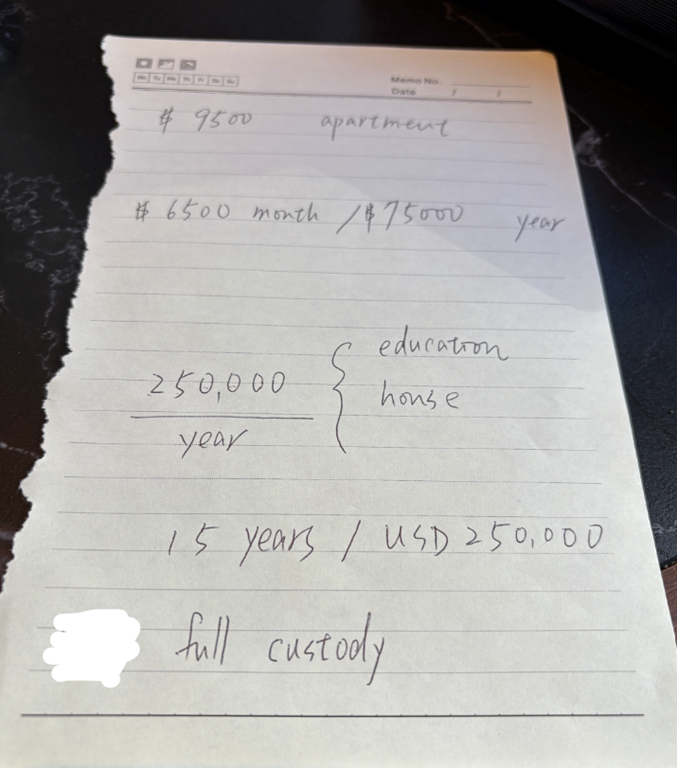 Mo Tu We Th Fr Sa Su
Memo No.
Date / /
$ 9500 apartment
$ 6500 month / $75000 year
250,000
year
education
house
15 years / USD 250,000
full custody